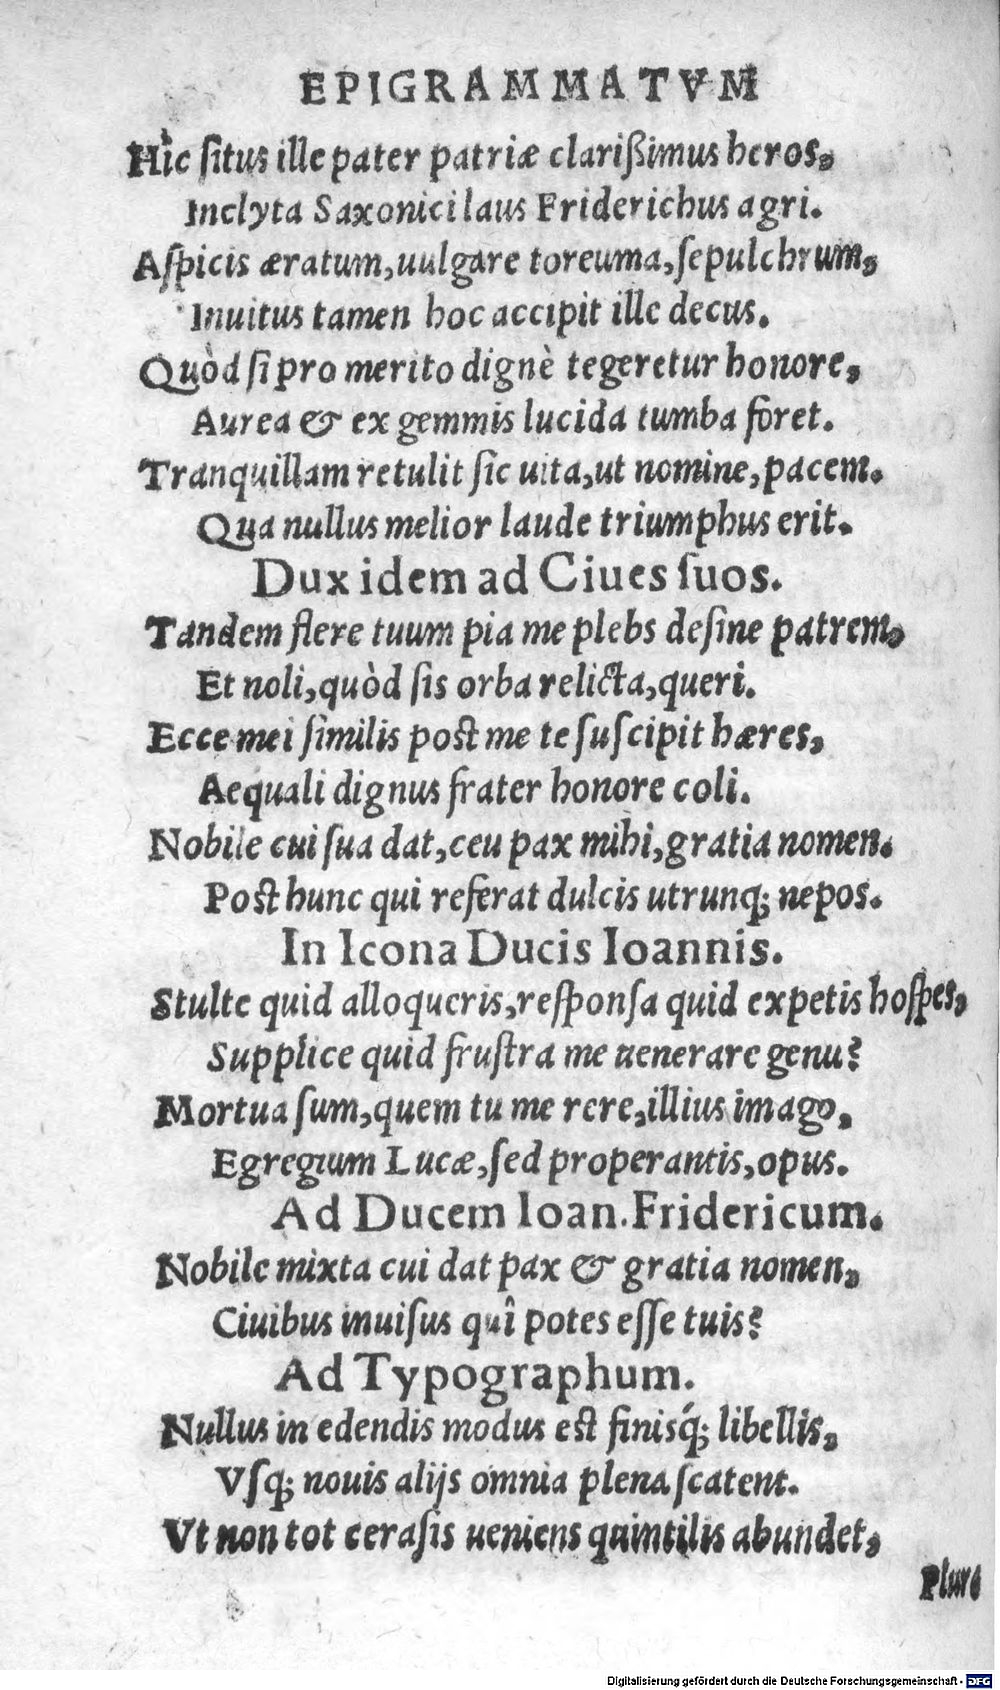 EPIGRAMMATVM
Hìc ſitus ille pater patriæ clariſſimus heros,
Inclyta Saxonici laus Friderichus agri.
Aſpicis æratum, uulgare toreuma, ſepulchrum,
Inuitus tamen hoc accipit ille decus.
Quòd ſi pro merito dignè tegeretur honore,
Aurea & ex gemmis lucida tumba foret.
Tranquillam retulit ſic uita, ut nomine, pacem.
Qua nullus melior laude triumphus erit.
Dux idem ad Ciues ſuos.
Tandem flere tuum pia me plebs deſine patrem,
Et noli, quòd ſis orba relicta, queri.
Ecce mei ſimilis poſt me te ſuſcipit hæres,
Aequali dignus frater honore coli.
Nobile cui ſua dat, ceu pax mihi, gratia nomen.
Poſt hunc qui referat dulcis utrunq; nepos.
In Icona Ducis Ioannis.
Stulte quid alloqueris, reſponſa quid expetis hoſpes,
Supplice quid fruſtra me uenerare genu?
Mortua ſum, quem tu me rere, illius imago,
Egregium Lucæ, ſed properantis, opus.
Ad Ducem Ioan. Fridericum.
Nobile mixta cui dat pax & gratia nomen,
Ciuibus inuiſus quî potes eſſe tuis?
Ad Typographum.
Nullus in edendis modus eſt finisq́; libellis,
Vſq; nouis alijs omnia plena ſcatent.
Vt non tot ceraſis ueniens quintilis abundet,
Plura
Digitalisierung gefördert durch die Deutsche Forschungsgemeinschaft - DFG